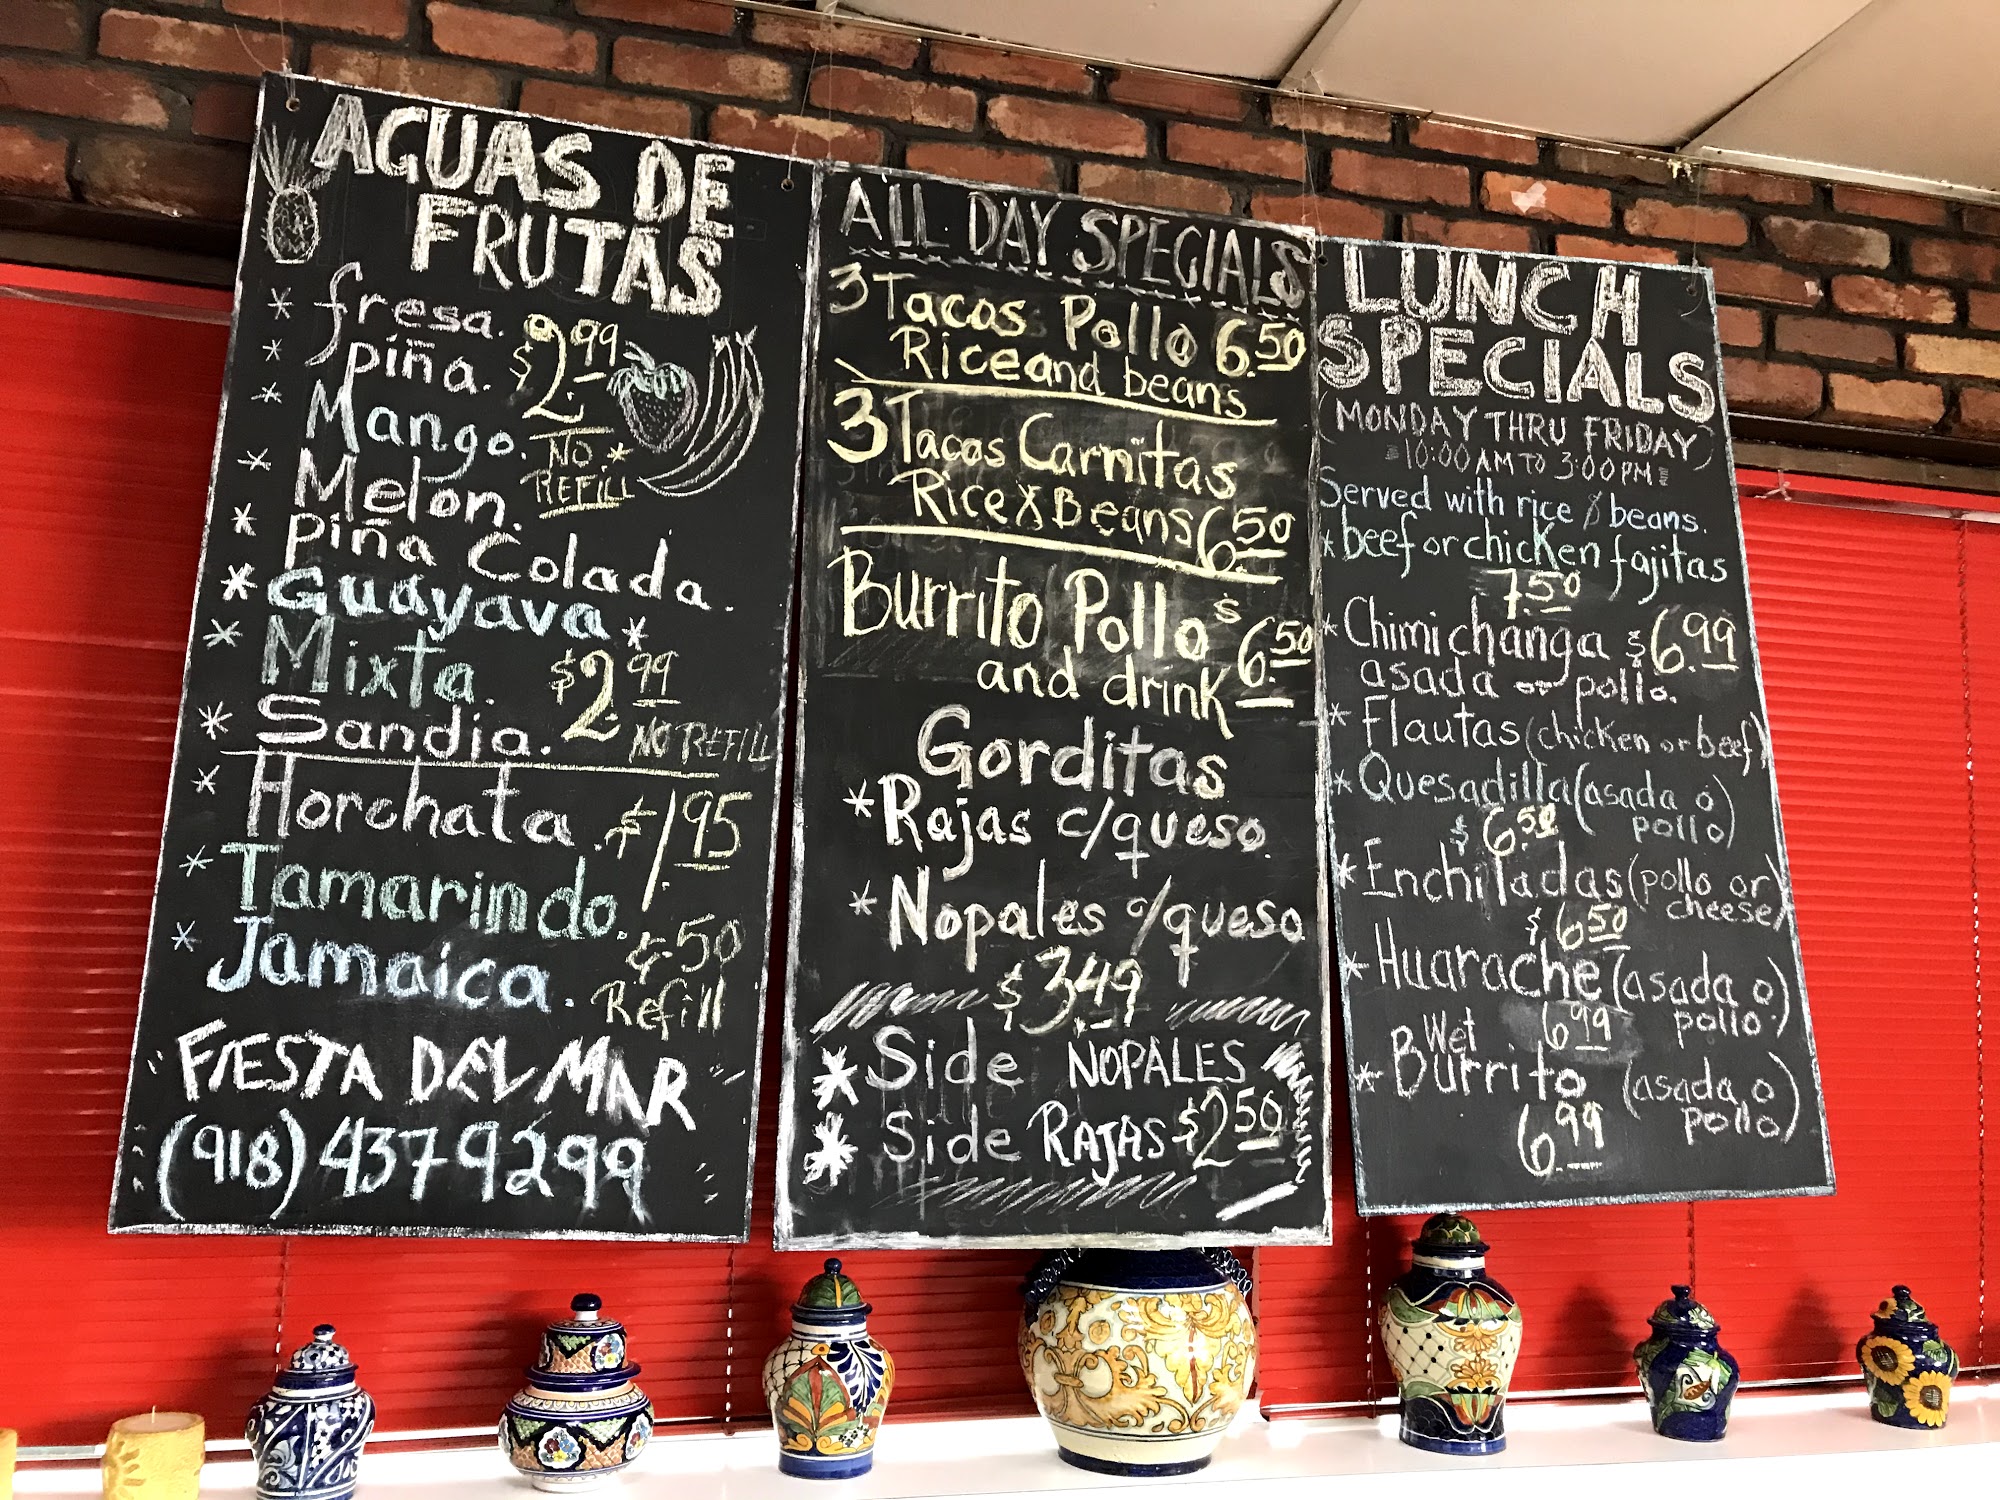 AGUAS DE
FRUTAS
* fresa.
* piña. $2.99
* Mango. NO *
* Melon. REFILL
* Piña Colada.
* Guayava *
* Mixta. $2.99
* Sandia. NO REFILL
* Horchata. $1.95
* Tamarindo.
* Jamaica. ¢50
Refill
FIESTA DEL MAR
(918) 4379299
ALL DAY SPECIALS
3 Tacos Pollo 6.50
Rice and beans
3 Tacos Carnitas
Rice & Beans 6.50
Burrito Pollo $6.50
and drink
Gorditas
* Rajas c/queso.
* Nopales c/queso
$3.49
* Side NOPALES
* Side RAJAS $2.50
LUNCH
SPECIALS
(MONDAY THRU FRIDAY)
10:00 AM TO 3:00 PM
Served with rice & beans.
* beef or chicken fajitas
7.50
* Chimichanga $6.99
asada or pollo.
* Flautas (chicken or beef)
* Quesadilla (asada o
$6.50 pollo)
* Enchiladas (pollo or
$6.50 cheese)
* Huarache (asada o
6.99 pollo.)
Wet
* Burrito (asada o
6.99 pollo)